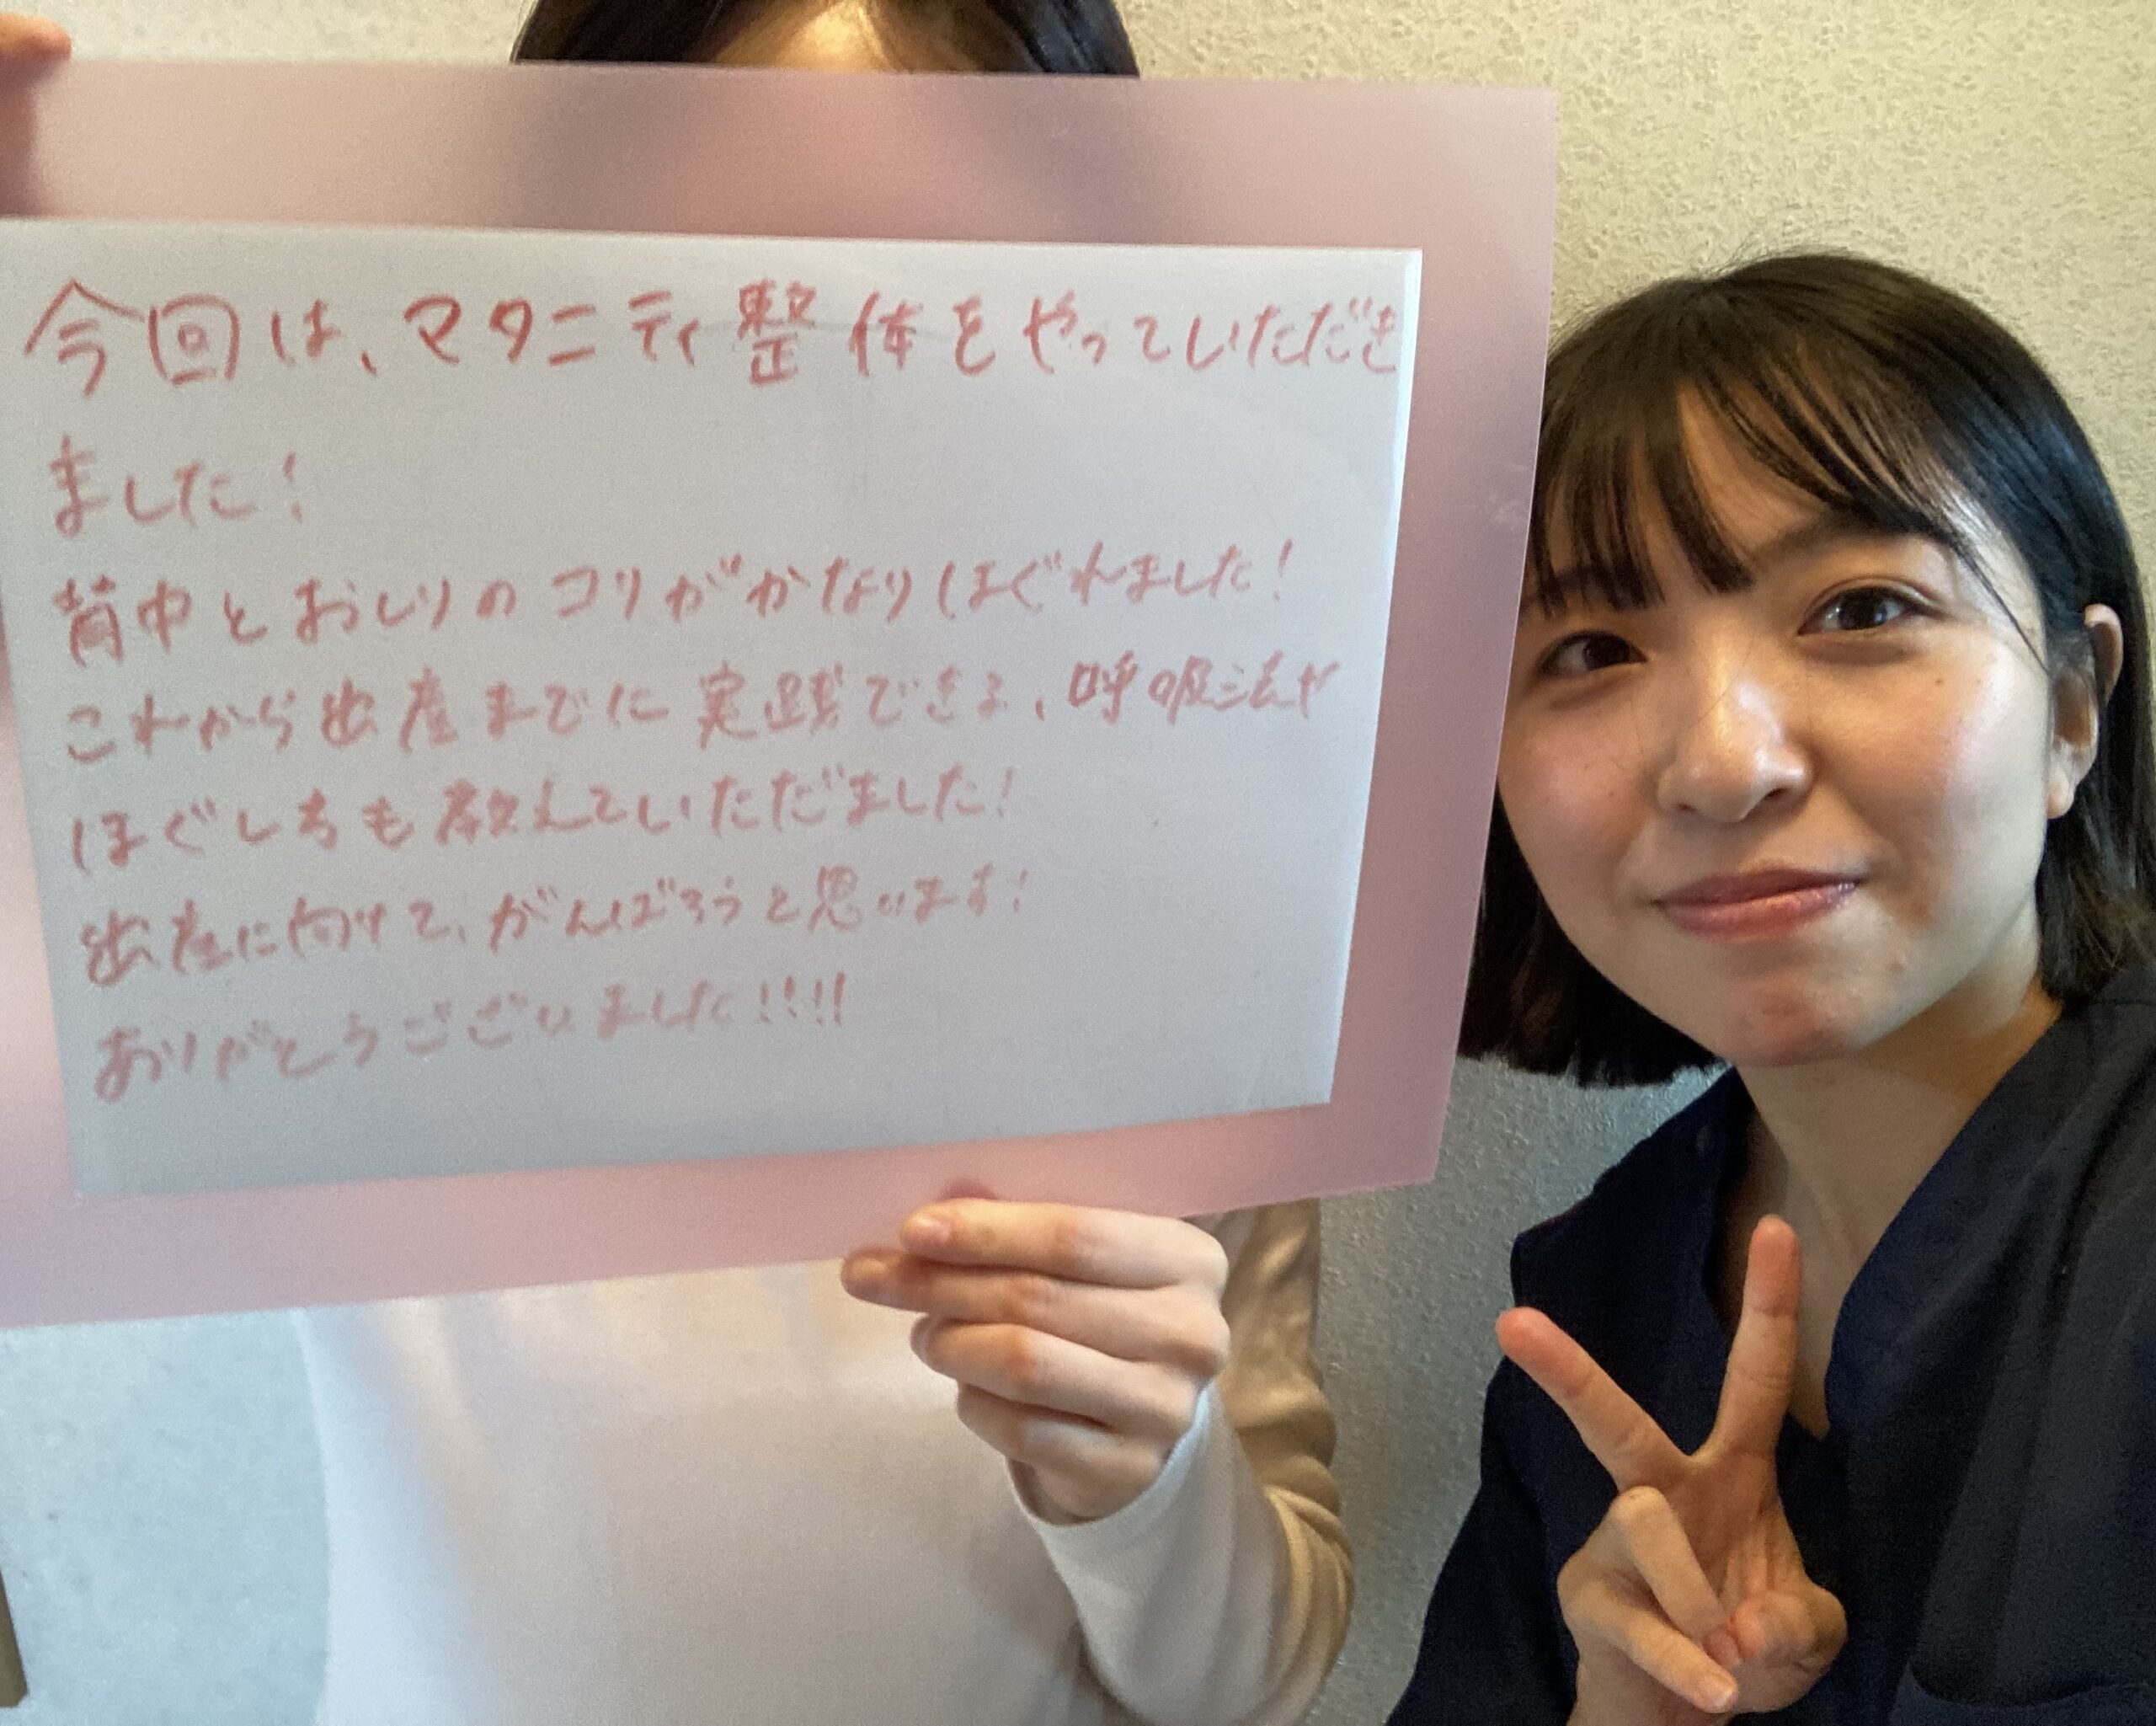 今回は、マタニティ整体をやっていただき
ました!
背中とおしりのコリがかなりほぐれました!
これから出産までに実践できる、呼吸法や
ほぐしちも教えていただだました!
出産に向けて、がんばろうと思います!
ありがとうございました!!!!